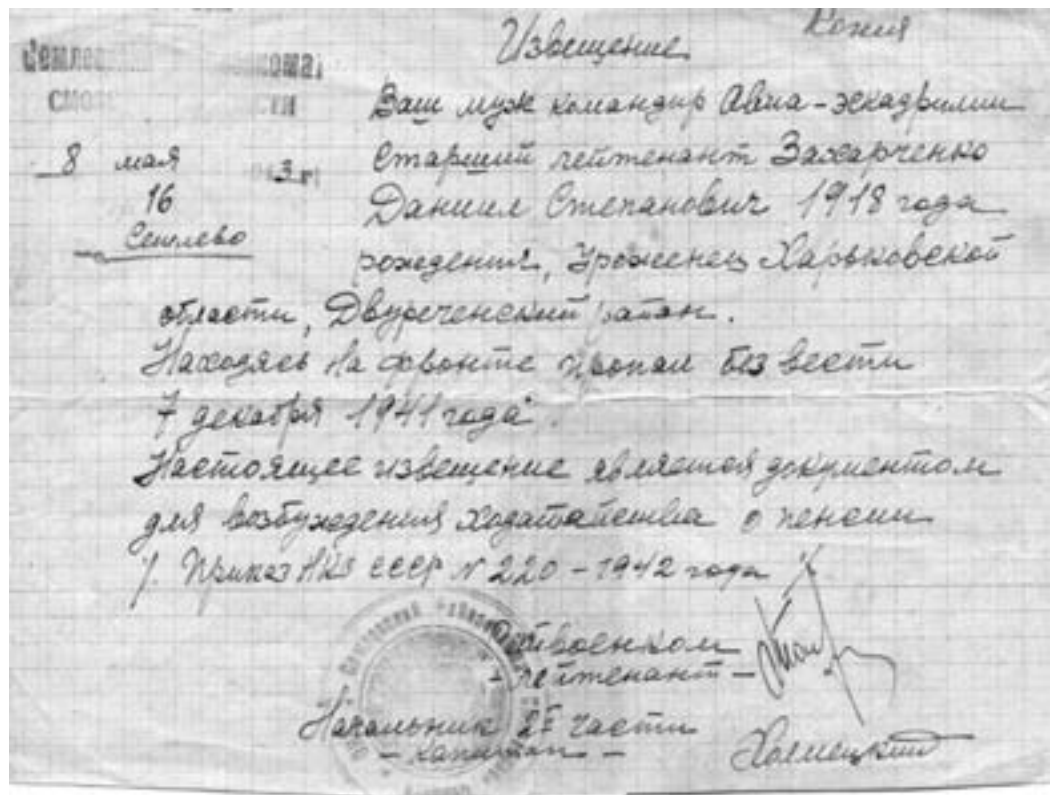 Копия
Извещение
Ваш муж командир Авиа-эскадрилии
Старший лейтенант Захарченко
8 мая 3 г
Даниил Степанович 1918 года
16
Семлево
рождения, Уроженец Харьковской
области, Двуреченский район.
Находясь на фронте пропал без вести
7 декабря 1941 года.
Настоящее извещение является документом
для возбуждения ходатайства о пенсии
Приказ НКО СССР № 220 - 1942 года
Райвоенком
- лейтенант -
Начальник 2й части
- капитан -